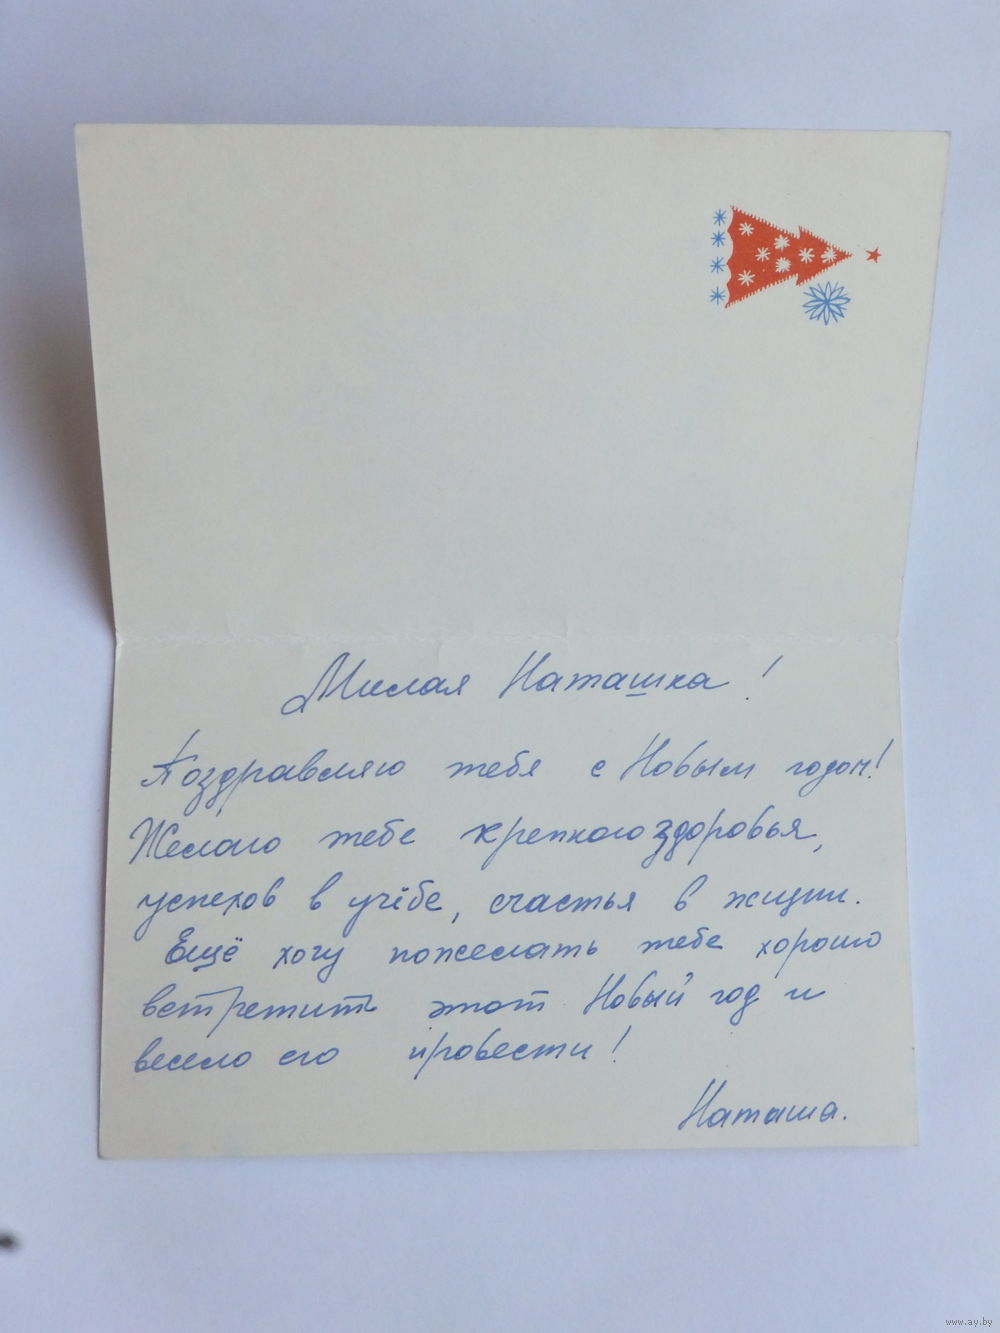 Милая Наташка!
Поздравляю тебя с Новым годом!
Желаю тебе крепкого здоровья,
успехов в учёбе, счастья в жизни.
Ещё хочу пожелать тебе хорошо
встретить этот Новый год и
весело его провести!
Наташа.
www.ay.by